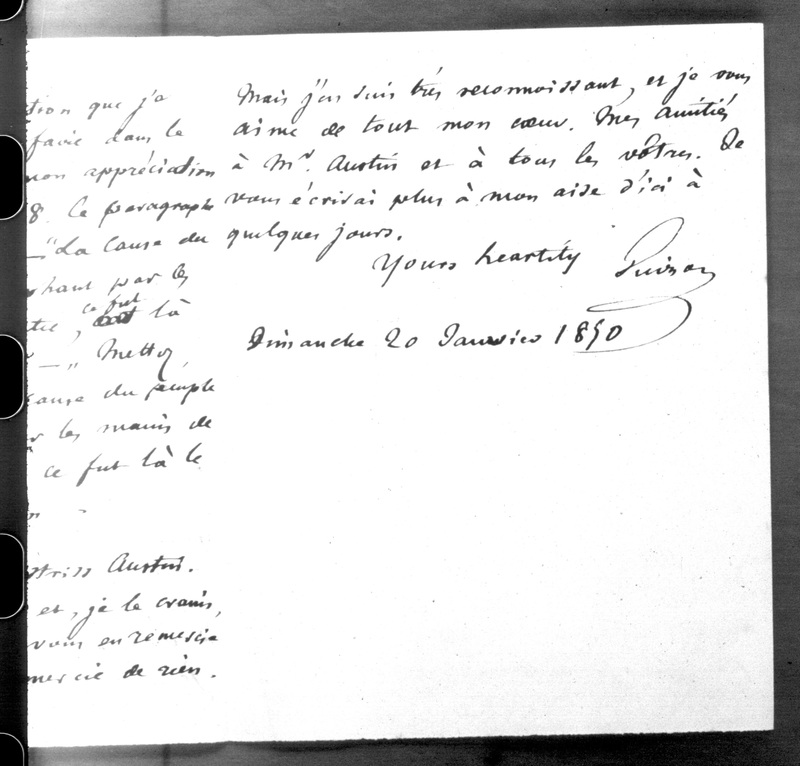 tion que je
faire dans le
mon appréciation
8. Ce paragraphe
— "La Cause du
chant par les
ce fut
là
— " Mettez,
cause du peuple
les mains de
ce fut là le
striss Austin.
et, je le crains,
vous en remercie
mercie de rien.
Mais j'en suis très reconnoissant, et je vous
aime de tout mon cœur. Mes amitiés
à Mr. Austin et à tous les vôtres. Je
vous écrirai plus à mon aise d'ici à
quelques jours.
Yours heartily Guizot
Dimanche 20 Janvier 1850